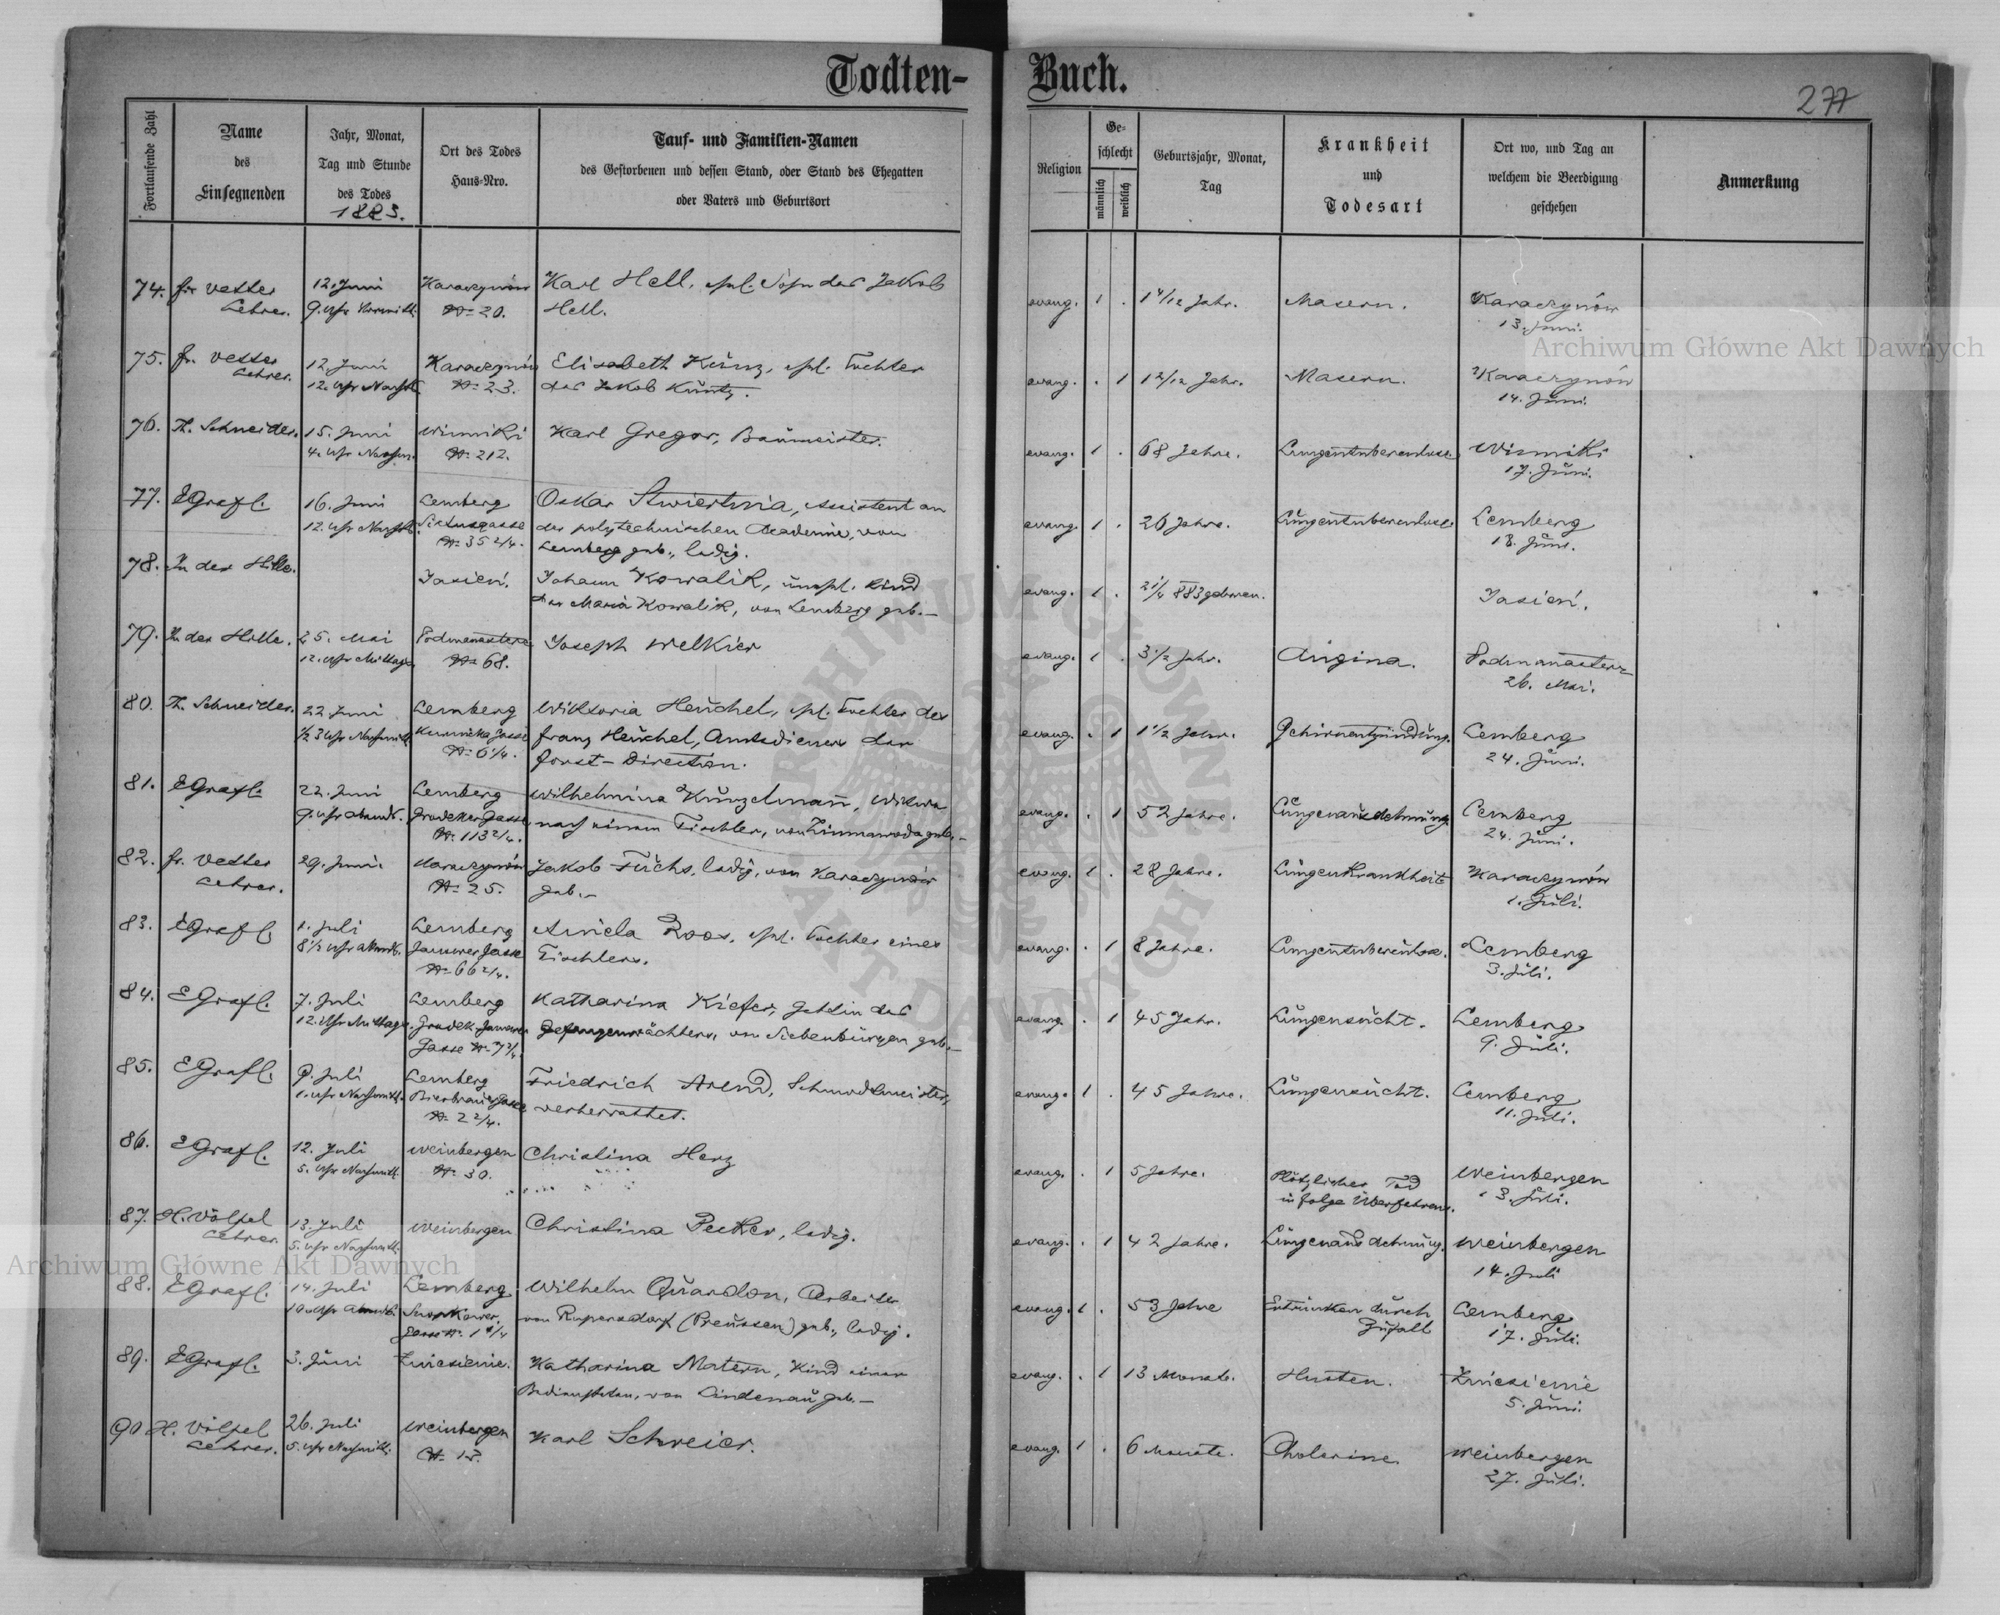 Todten-Buch.
277
Fortlaufende Zahl
Name
des
Einsegnenden
Jahr, Monat,
Tag und Stunde
des Todes
1883.
Ort des Todes
Haus-Nro.
Tauf- und Familien-Namen
des Gestorbenen und dessen Stand, oder Stand des Ehegatten
oder Vaters und Geburtsort
Religion
Ge-
schlecht
männlich
weiblich
Geburtsjahr, Monat,
Tag
Krankheit
und
Todesart
Ort wo, und Tag an
welchem die Beerdigung
geschehen
Anmerkung
74. fr. Vetter 12. Juni Karaczynów Karl Hell, ehl. Sohn des Jakob
Lehrer. 9. Uhr Vormitt. No 20. Hell.
evang. 1 . 1 4/12 Jahr. Masern. Karaczynów
13. Juni.
75. fr. Vetter 12. Juni Karaczynów Elisabeth Künz, ehl. Tochter
Lehrer. 12. Uhr Nachts No 23. des Jakob Küntz.
evang. . 1 1 2/12 Jahr. Masern. Karaczynów
14. Juni.
76. Th. Schneider. 15. Juni Winniki Karl Gregor, Baumeister.
4. Uhr Nachm. No 212.
evang. 1 . 68 Jahre. Lungentuberculose Winniki
17. Juni.
77. EGrafl. 16. Juni Lemberg Oskar Swiertnia, Assistent an
12. Uhr Nachts. Sixtusgasse der polytechnischen Academie, von
No 35 2/4. Lemberg geb., ledig.
evang. 1 . 26 Jahre. Lungentuberculose. Lemberg
18. Juni.
78. In der Hölle. Jasień. Johann Kowalik, unehl. Kind
der Maria Kowalik, von Lemberg geb.
evang. 1 . 21/4 883 geboren. Jasień.
79. In der Hölle. 25. Mai Podmanasterz Joseph Welkier
12. Uhr Mittags No 68.
evang. 1 . 3 1/2 Jahr. Angina. Podmanasterz
26. Mai.
80. Th. Schneider. 22 Juni Lemberg Wiktoria Heuchel, ehl. Tochter des
1/2 3 Uhr Nachmitt. Gasse Franz Heuchel, Amtsdieners der
No 6 1/4. Forst-Direction.
evang. . 1 1 1/2 Jahr. Gehirnentzündung. Lemberg
24. Juni.
81. EGrafl. 22. Juni Lemberg Wilhelmina Künzelmann, Witwe
9. Uhr Abends. Grodeker Gasse nach einem Tischler, von geb.
No 113 2/4.
evang. . 1 52 Jahre. Lungenausdehnung Lemberg
24. Juni.
82. fr. Vetter 29. Juni. Karaczynów Jakob Fuchs, ledig, von Karaczynów
Lehrer. No 25. geb.
evang. 1 . 28 Jahre. Lungenkrankheit Karaczynów
1. Juli.
83. EGrafl. 1. Juli Lemberg Aniela Roos, ehl. Tochter eines
8 1/2 Uhr Abends. Janower Gasse Tischlers.
No 66 2/4.
evang. . 1 8 Jahre. Lungentuberculose. Lemberg
3. Juli.
84. EGrafl. 7. Juli Lemberg Katharina Kiefer, Gattin des
12. Uhr Mittags. Grodek-Janower Gefangenwächters, von Siebenbürgen geb.
Gasse No 7 2/4
evang. . 1 45 Jahr. Lungensucht. Lemberg
9. Juli.
85. EGrafl. 9. Juli Lemberg Friedrich Arend, Schmiedmeister,
1. Uhr Nachmitt. Bierbrauer Gasse verheirathet.
No 2 2/4.
evang. 1 . 45 Jahre. Lungensucht. Lemberg
11. Juli.
86. EGrafl. 12. Juli Weinbergen Christina Herz
5. Uhr Nachmitt. No 30.
evang. . 1 5 Jahre. Plötzlicher Tod Weinbergen
in folge Überfahren. 13. Juli.
87. H. Völpel 13. Juli Weinbergen Christina Pecker, ledig.
Lehrer. 5. Uhr Nachmitt.
evang. . 1 42 Jahre. Lungenausdehnung. Weinbergen
14. Juli
88. EGrafl. 14. Juli Lemberg Wilhelm Quardon, Arbeiter
10. Uhr Abends von Rupersdorf (Preussen) geb., ledig.
Gasse No 1 4/4
evang. 1 . 53 Jahre Ertrunken durch Lemberg
Zufall 17. Juli.
89. EGrafl. 3. Juni Zniesienie. Katharina Matern, Kind einer
Bediensteten, von Lindenau geb.
evang. . 1 13 Monate. Husten. Zniesienie
5. Juni.
90 H. Völpel 26. Juli Weinbergen Karl Schreier.
Lehrer. 5. Uhr Nachmitt. No 17.
evang. 1 . 6 Monate. Cholerine. Weinbergen
27. Juli.
Archiwum Główne Akt Dawnych
Archiwum Główne Akt Dawnych
ARCHIWUM GŁÓWNE AKT DAWNYCH